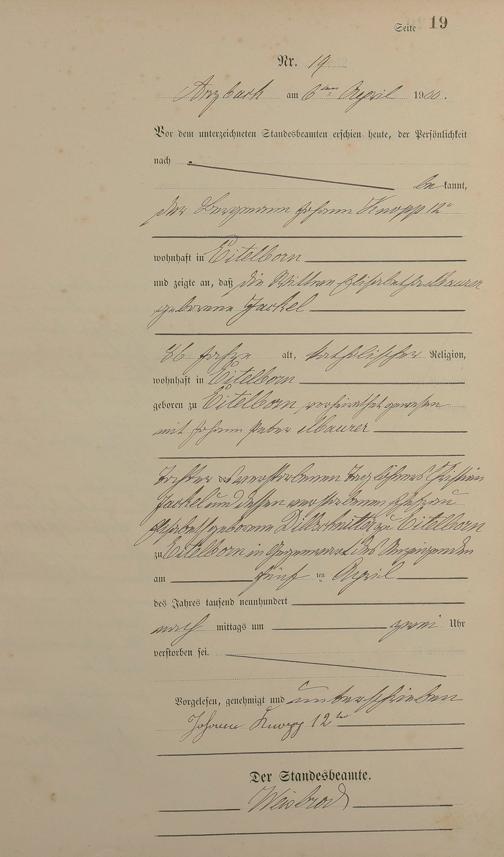 Seite 19
Nr. 19
Arzbach am 6ten April 1900.
Vor dem unterzeichneten Standesbeamten erschien heute, der Persönlichkeit
nach
bekannt,
der Bergmann Johann Knopp 12te
wohnhaft in Eitelborn
und zeigte an, daß die Wittwe Elisabetha Maurer
geborene Jackel
Jahre alt, katholischer Religion,
wohnhaft in Eitelborn
geboren zu Eitelborn, verheirathet gewesen
mit Johann Peter Maurer
Tochter des verstorbenen Taglöhners
Jackel und dessen verstorbenen Ehefrau
geborene zu Eitelborn
zu Eitelborn in Gegenwart des Anzeigenden
am fünf ten April
des Jahres tausend neunhundert
nach mittags um zwei Uhr
verstorben sei.
Vorgelesen, genehmigt und unterschrieben
Johann Knopp 12te
Der Standesbeamte.
Weisbrod